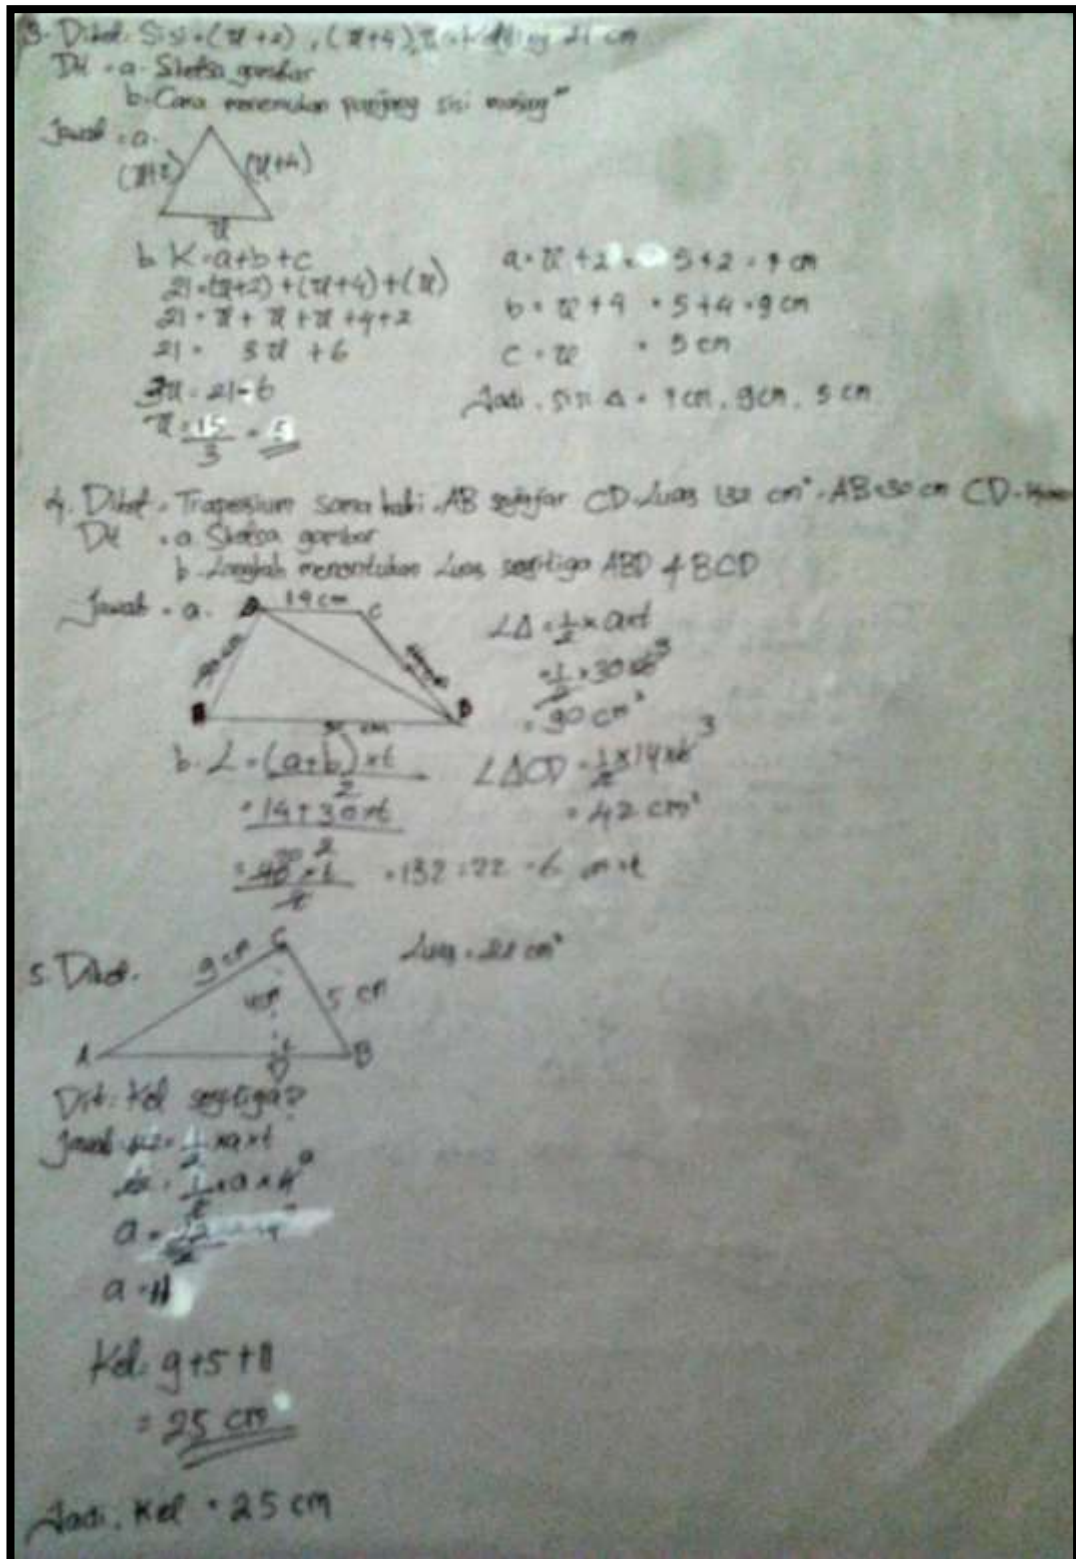 3. Diket: Sisi = (x+2), (x+4), x. Keliling 21 cm
Dit = a. Sketsa gambar
b. Cara menemukan panjang sisi masing"
Jawab = a.
(x+2) (x+4)
x
b. K = a+b+c
21 = (x+2) + (x+4) + (x)
21 = x + x + x + 4 + 2
21 = 3x + 6
3x = 21 - 6
x = 15/3 = 5
a = x + 2 = 5+2 = 7 cm
b = x + 4 = 5+4 = 9 cm
c = x = 5 cm
Jadi, sisi Δ = 7 cm, 9 cm, 5 cm.
4. Diket = Trapesium sama kaki. AB sejajar CD. Luas 132 cm². AB = 30 cm CD =
Dit = a. Sketsa gambar
b. Langkah menentukan Luas segitiga ABD & BCD
Jawab = a. D 14 cm C
B
30 cm
b. L = (a+b) × t / 2
= 14 + 30 × t / 2
= 132 : 22 = 6 cm = t
LΔ = 1/2 × a × t
= 1/2 × 30 × 6 3
= 90 cm²
LΔCD = 1/2 × 14 × 6 3
= 42 cm²
5. Diket.
9 cm C 5 cm
4 cm
A D B
Luas = 22 cm²
Dit: Kel segitiga?
Jawab = 1/2 × a × t
= 1/2 × a × 4
a = 22/2
a = 11
Kel: 9+5+11
= 25 cm
Jadi, Kel = 25 cm